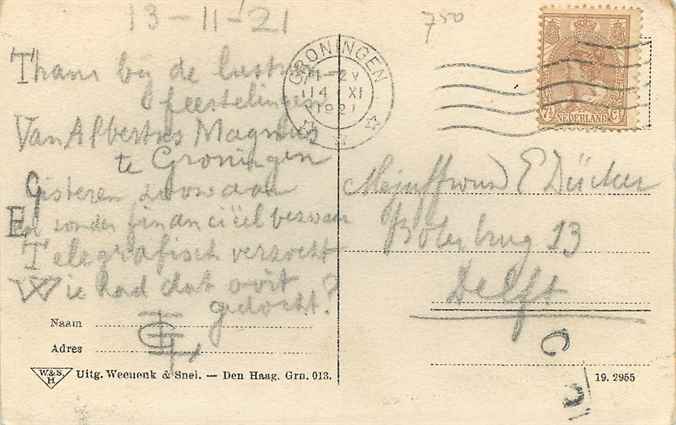 13-11-'21
Thans bij de lustrum
feestelingen
Van Albertus Magnus
te Groningen
Gisteren
Een zonder financiëel bezwaar
Telegrafisch verzocht
Wie had dat ooit
gedacht?
Naam
Adres
W&S.
H
Uitg. Weenenk & Snel. — Den Haag. Grn. 013.
750
GRONINGEN
14 XI
1921
7½
NEDERLAND
Mejuffrouw E Dücker
13
Delft
19. 2955